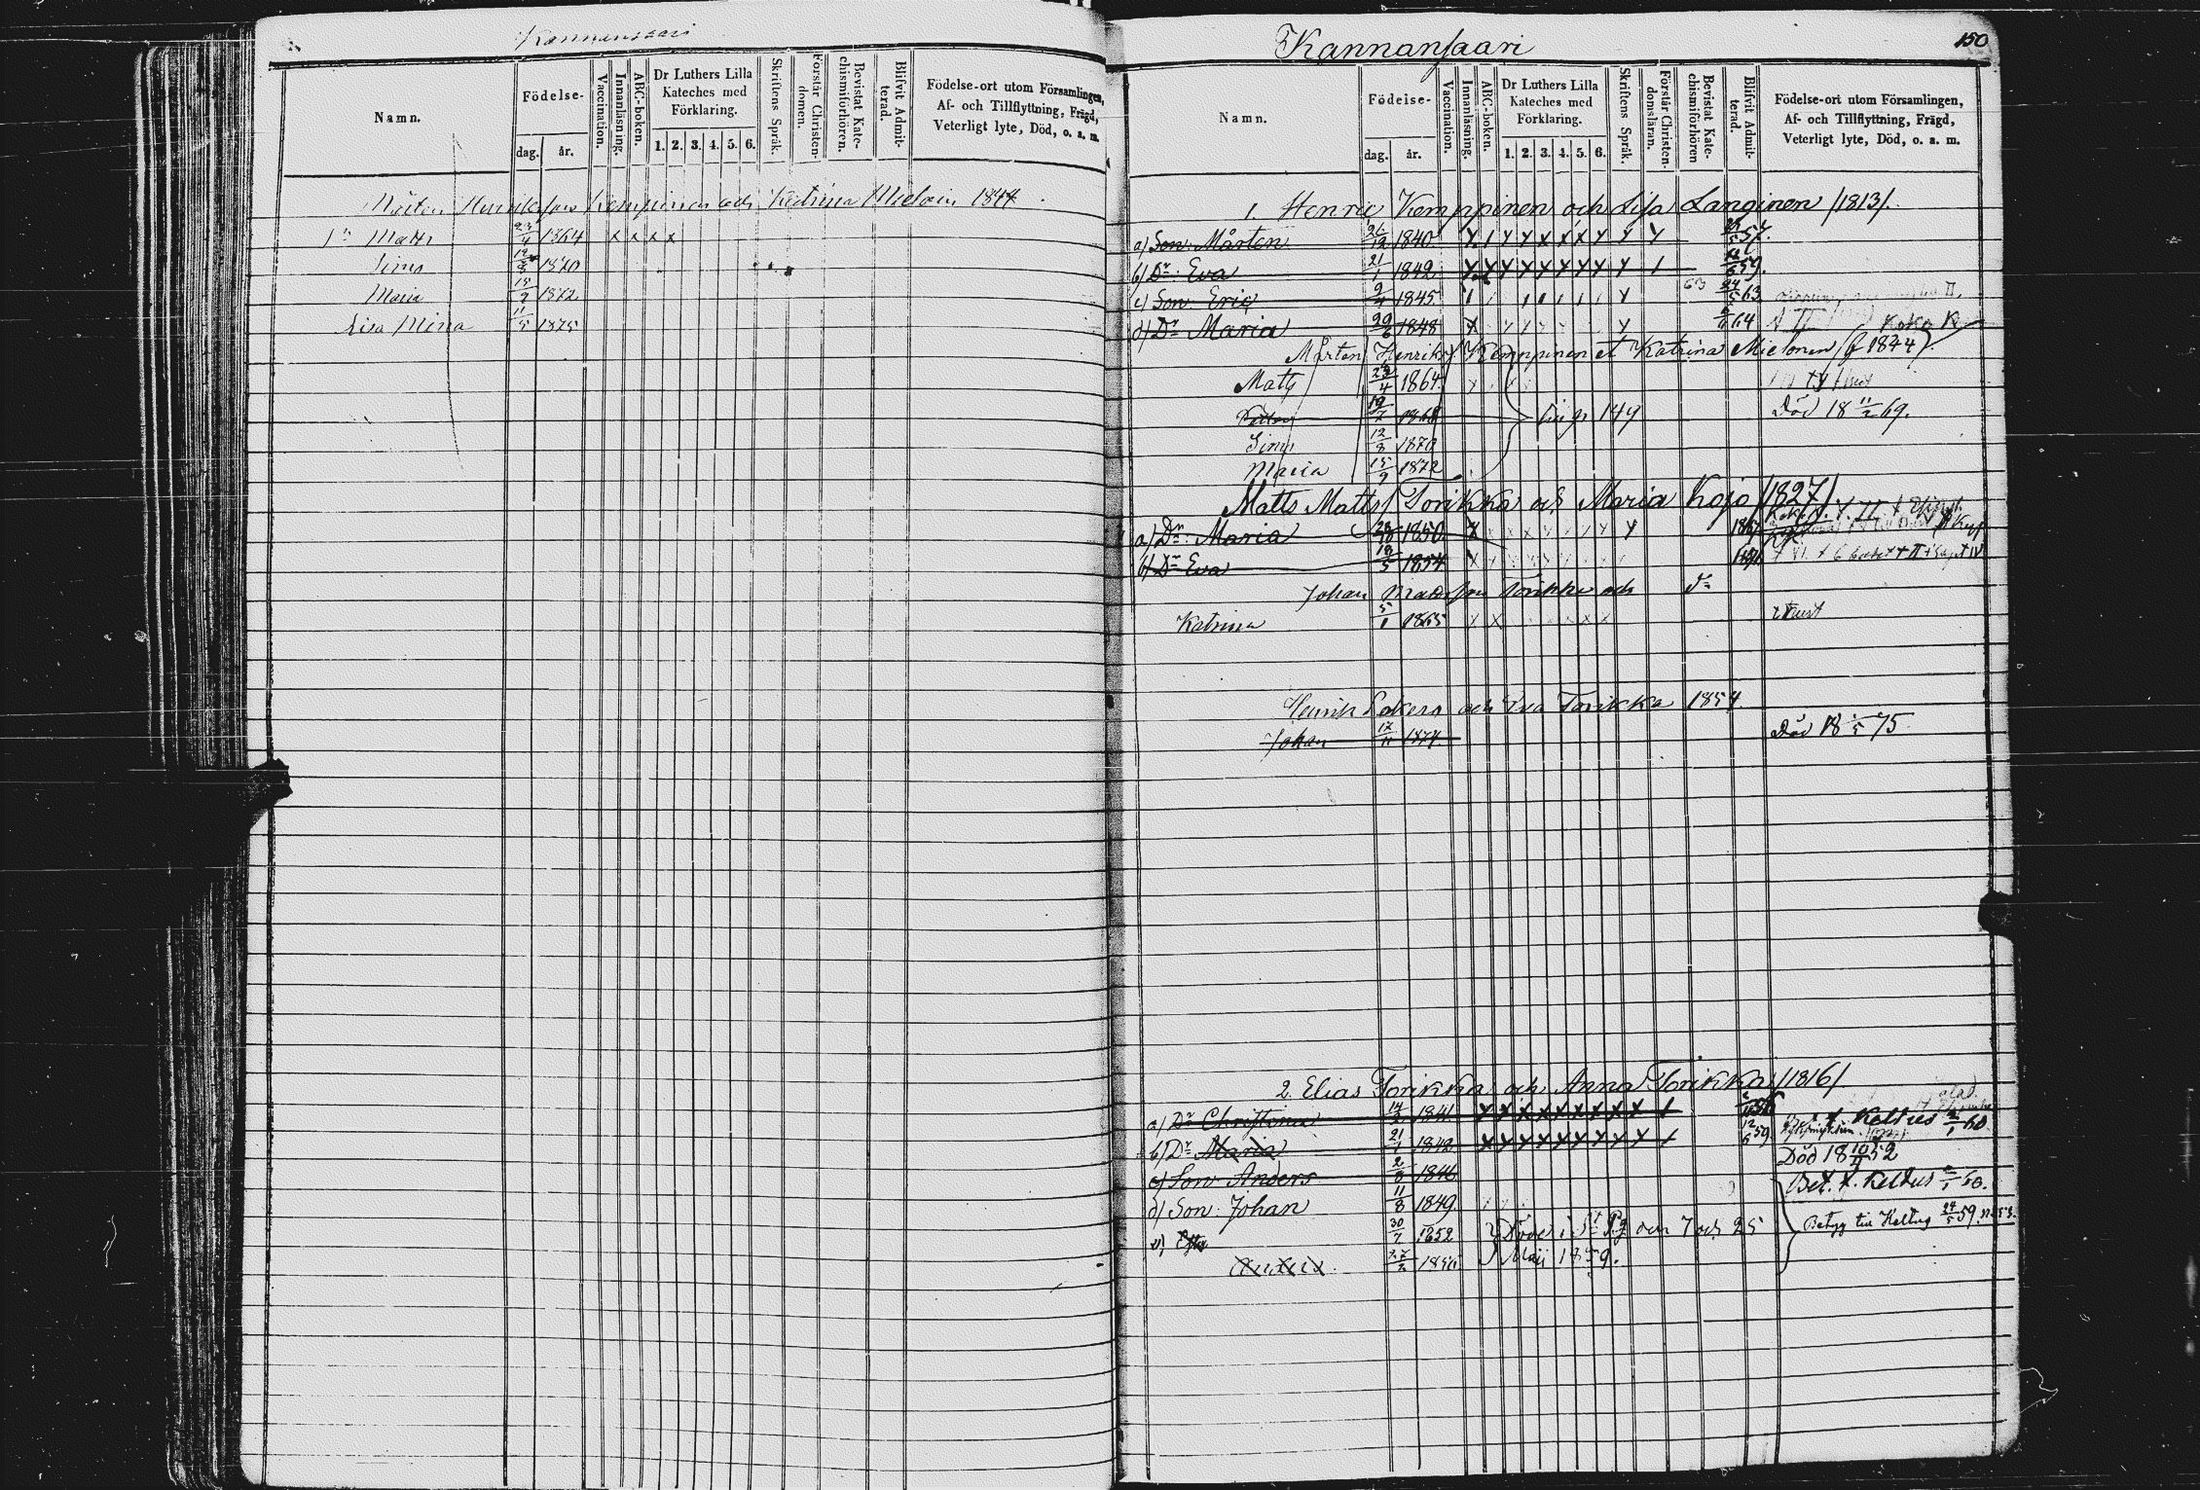 Kannansaari
Namn.
Födelse-
dag.
år.
Vaccination.
Innanläsning.
ABC-boken.
Dr Luthers Lilla
Kateches med
Förklaring.
1. 2. 3. 4. 5. 6.
Skriftens Språk.
Förstår Christen-
domen.
Bevistat Kate-
chismiförhören.
Blifvit Admit-
terad.
Födelse-ort utom Församlingen,
Af- och Tillflyttning, Frägd,
Veterligt lyte, Död, o. a. m.
Mårten Henriksson Kemppinen och Katrina Mieloin 1844
Matts 23/4 1864 x x x x
Simo 12/8 1870
Maria 15/9 1872
Lisa Mina 11/5 1875
Kannansaari
150
Namn.
Födelse-
dag.
år.
Vaccination.
Innanläsning.
ABC-boken.
Dr Luthers Lilla
Kateches med
Förklaring.
1. 2. 3. 4. 5. 6.
Skriftens Språk.
Förstår Christen-
domsläran.
Bevistat Kate-
chismiförhören
Blifvit Admit-
terad.
Födelse-ort utom Församlingen,
Af- och Tillflyttning, Frägd,
Veterligt lyte, Död, o. a. m.
1. Henric Kemppinen och Lisa Langinen /1813/.
a) Son Mårten 26/12 1840 57.
b) Dr Eva 21/1 1842 59.
c) Son Eric 9/4 1845 63 24/5 63
d) Dr Maria 29/6 1848 64 Koko K
Mårten Henriks Kemppinen et Katrina Mielonen (f 1844)
Matts 23/4 1864
19/7 1868 Död 18 11/2 69.
Simo 12/8 1870
Maria 15/9 1872
Matts Matts Torikka och Maria Kojo /1827/
a) Dr Maria 1850
b) Dr Eva 18/5 1854
Johan Mattsson Torikka och Dr
Katrina 5/1 1865
Henrik Pokero och Eva Torikka 1854
Johan 17/11 1874 Död 18 1/5 75.
2. Elias Torikka och Anna Torikka /1816/
a) Dr Christina 1841
b) Dr Maria 21/1 1842 12/6 59 Keltus 2/1 60
c) Son Anders 2/8 1846 Död 18 10/11 52
d) Son Johan 11/8 1849 Bet. t. Keltus 2/1 60.
e) 30/7 1852 Döde i St Pg den 7 och 25 Betyg till Keltus 24/5 59. No 53
Maij 1859.